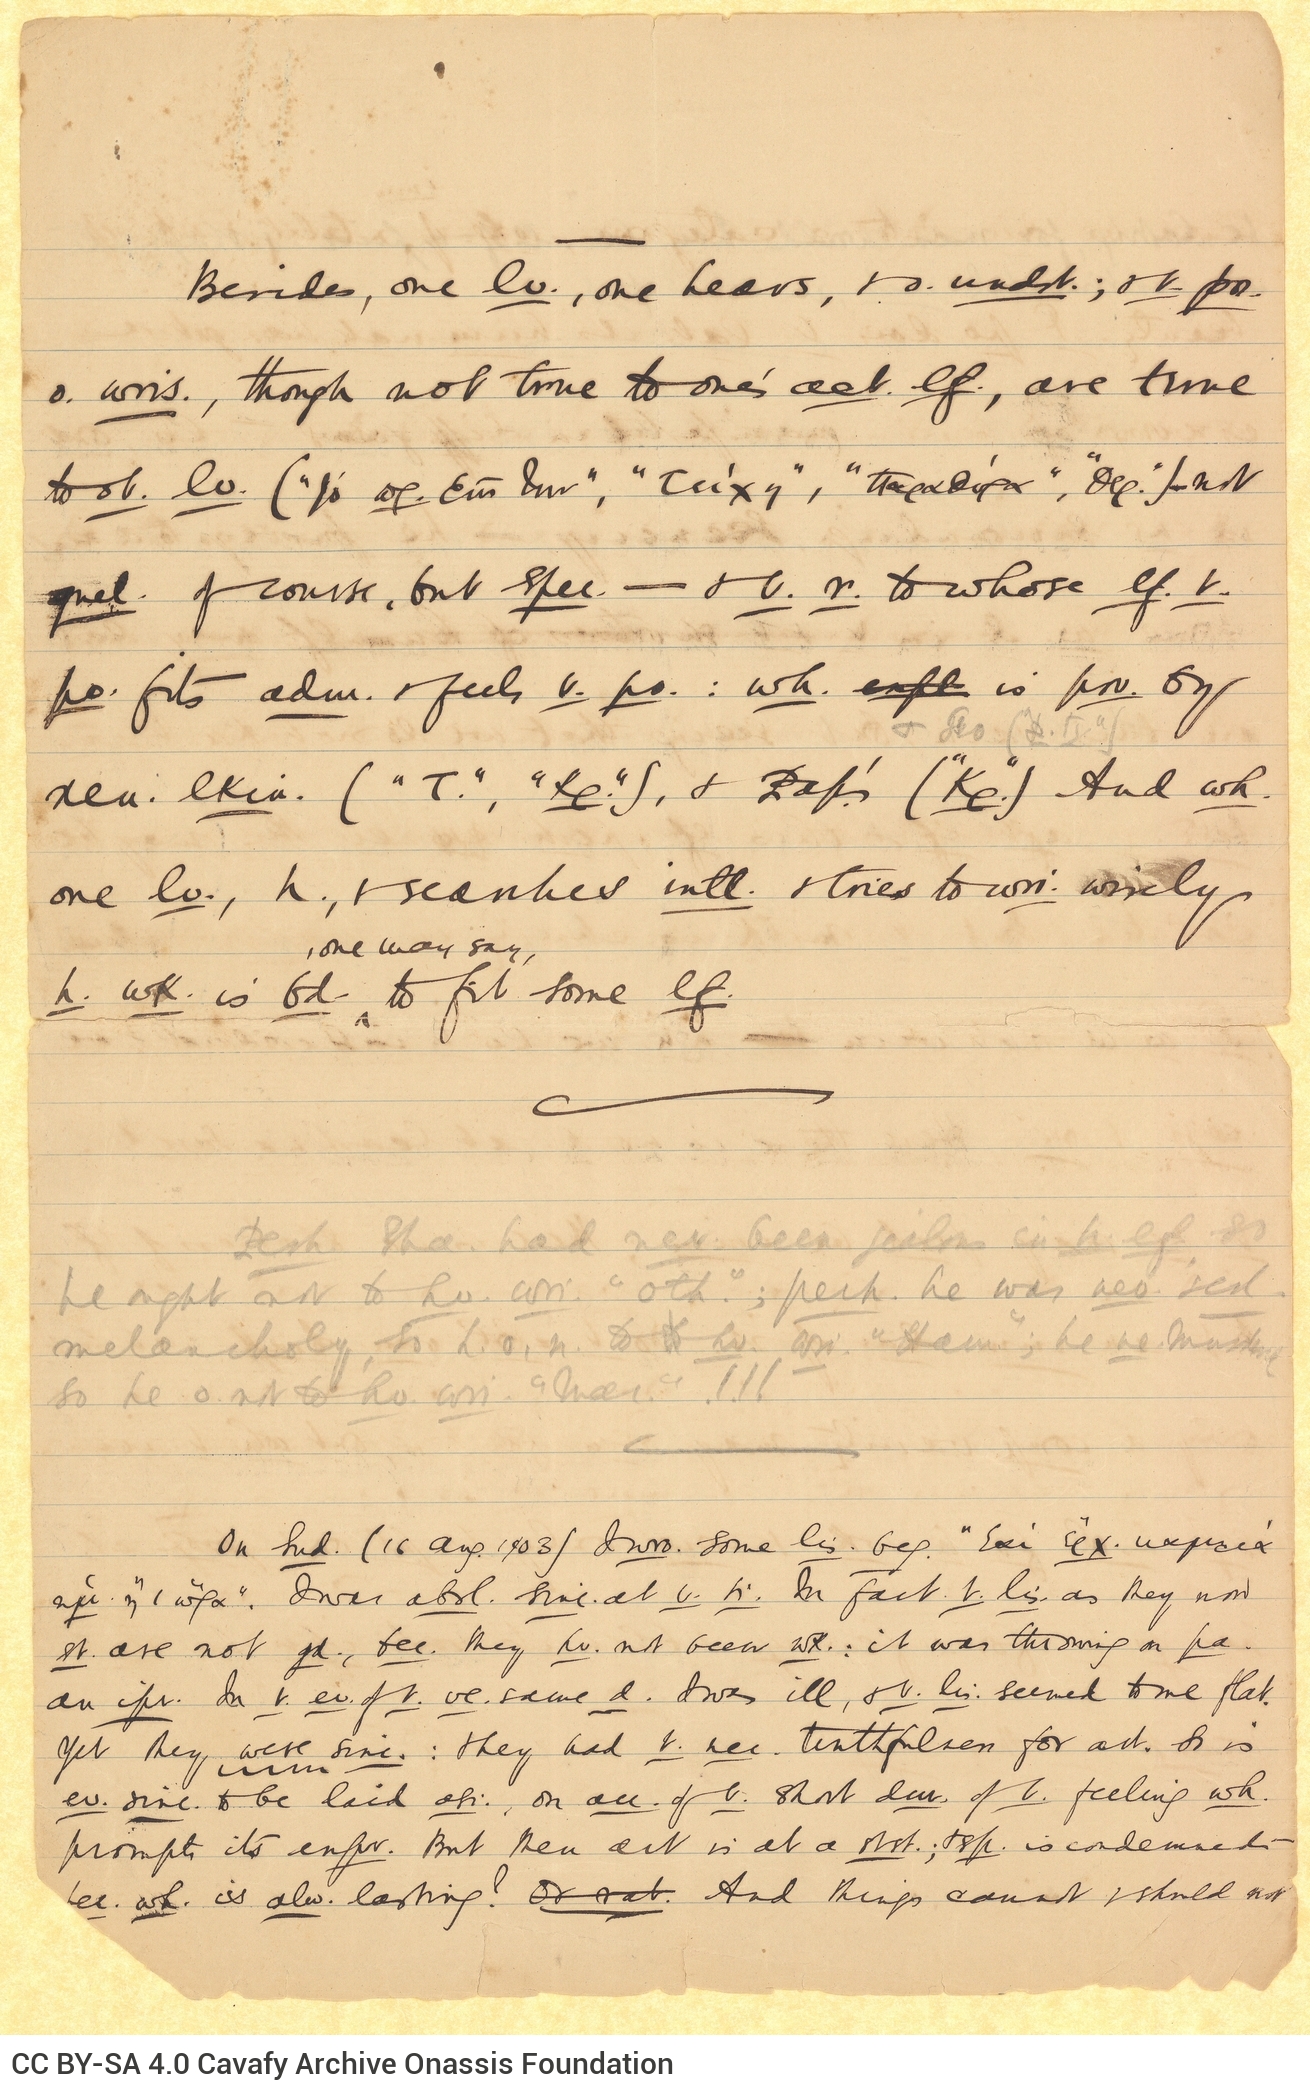 Besides, one lv., one hears, & o. undst.; & t. po.
o. wris., though not true to one's act. lf., are true
to ot. lv. ("Τείχη", "Παράθυρα", "Θερ.") not
gnel. of course, but spec. — & t. r. to whose lf. t.
po. fits adm. & feels t. po. : wh. is prv. by
xen. lkin. ("Τ.", "Κε."), & Paps ("Κε.") And wh.
one lv., h., & searches intl. & tries to wri. wisely
, one may say,
h. wk. is bd. to fit some lf.
Perh. Sha. had nev. been jealous in h. lf. so
he ought not to hv. wri. "Oth."; perh. he was nev. serl.
melancholy, so h. o. n. to hv. wri. "Ham."; he ne. murdered
so he o. not to hv. wri. "Mac." !!!
On Sud. (16 Aug. 1903) I wro. some lis. beg.
I was absl. sinc. at t. ti. In fact t. lis. as they now
st. are not gd., bec. they hv. not been wk. : it was throwing on pa.
an ipr. In t. ev. of t. ve. same d. I was ill, & t. lis. seemed to me flat.
Yet they were sinc. : they had t. nec. truthfulness for art. So is
ev. sinc. to be laid asi., on acc. of t. short dur. of t. feeling wh.
prompts its expr. But then art is at a stst.; & sp. is condemned —
bec. wh. is alw. lasting? And things cannot & should not
CC BY-SA 4.0 Cavafy Archive Onassis Foundation